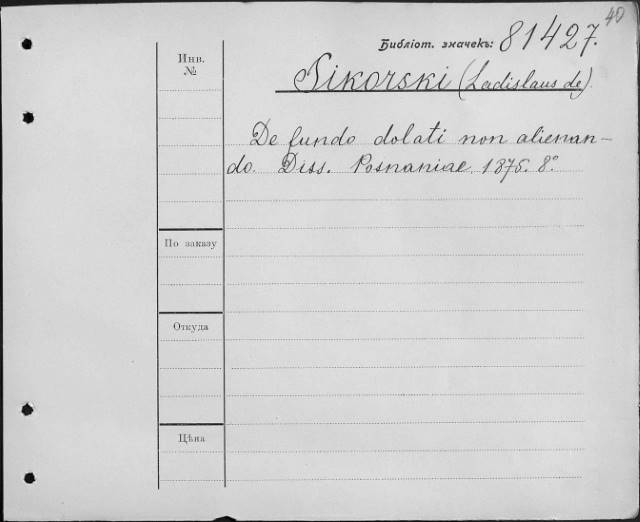 40
Библіот. значекъ: 81427.
Инв.
№
Sikorski (Ladislaus de).
De fundo dolati non alienan-
do. Diss. Posnaniae 1876. 8°.
По заказу
Откуда
Цѣна